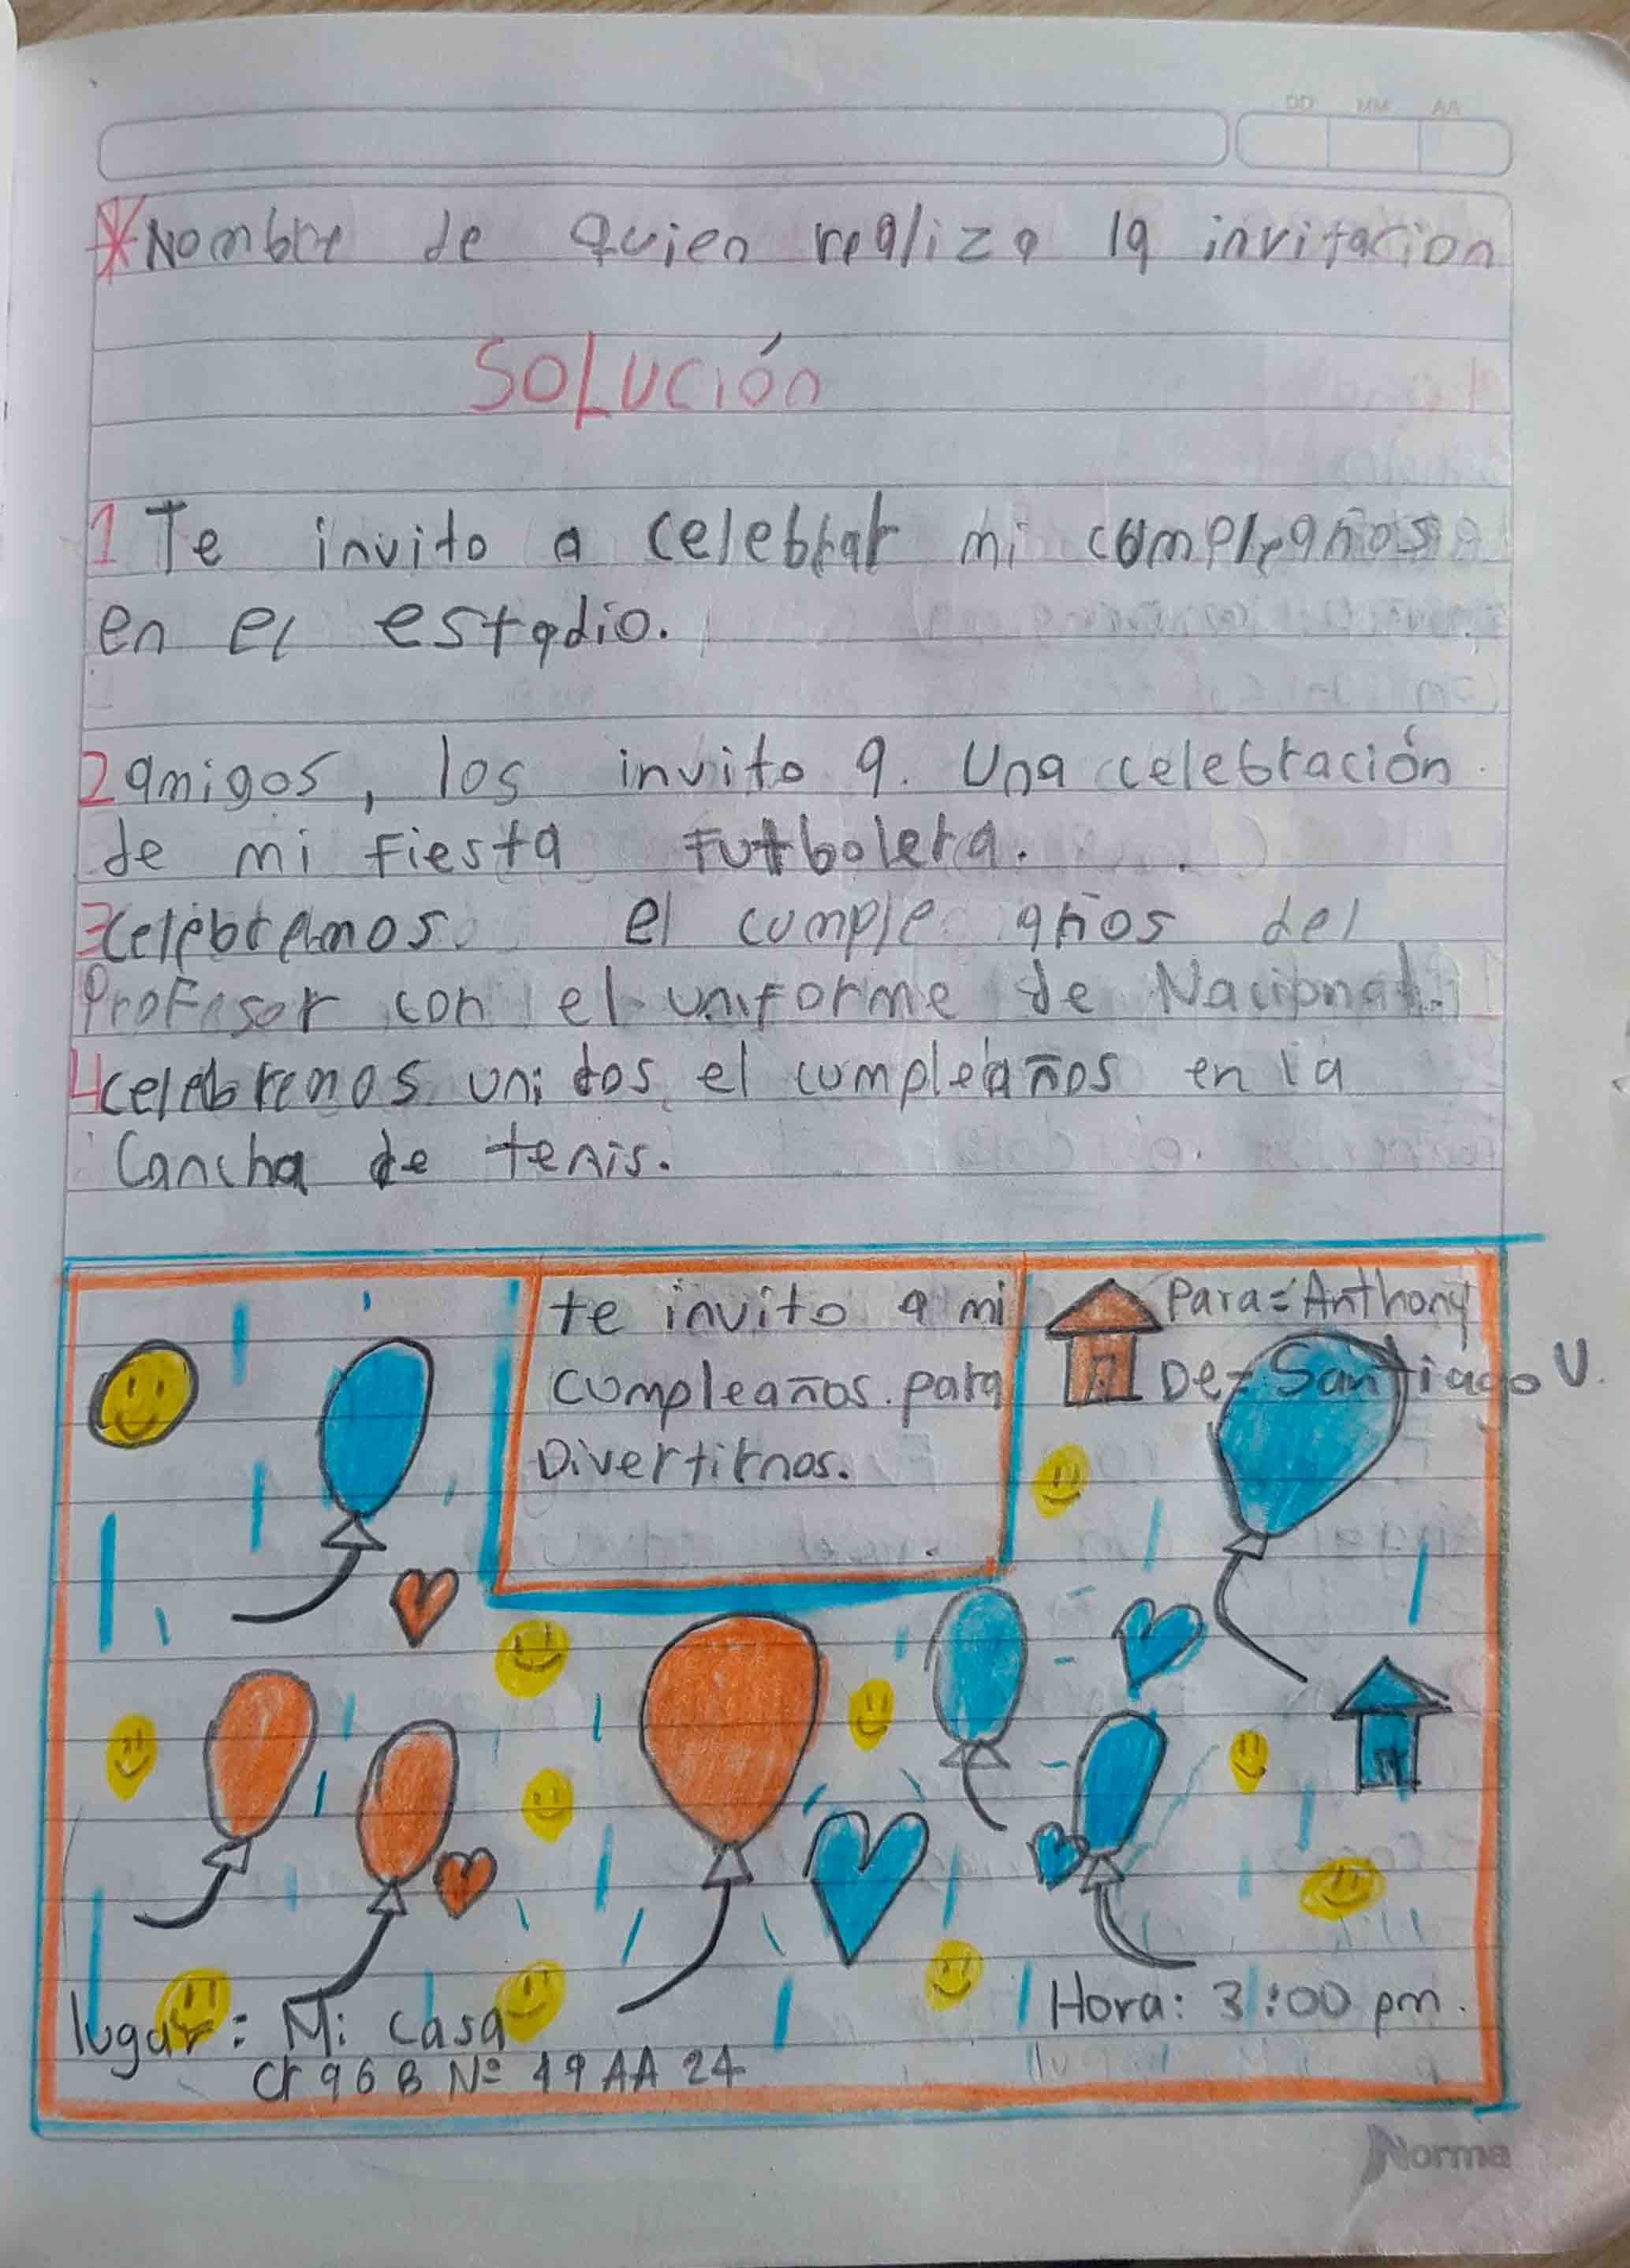 DD MM AA
*Nombre de quien realiza la invitacion
SOLución
1 Te invito a celebrar mi cumpleaños
en el estadio.
2 amigos, los invito a. Una celebración
de mi fiesta Futbolera.
3 celebremos el cumple años del
Profesor con el uniforme de Nacional.
4 celebremos unidos el cumpleaños en la
Cancha de tenis.
te invito a mi
cumpleaños. para
Divertirnos.
Para= Anthony
De= Santiago V.
lugar: Mi casa
Hora: 3:00 pm.
Cr 96 B Nº 49 AA 24
Norma